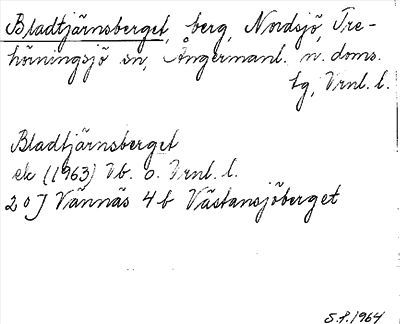 Bladtjärnsberget, berg, Nordsjö, Tre-
hörningsjö sn, Ångermanl. n. doms.
tg, Vrnl. l.
Bladtjärnsberget
ek (1963) Vb. o. Vrnl. l.
20J Vännäs 4b Västansjöberget
S.f. 1964